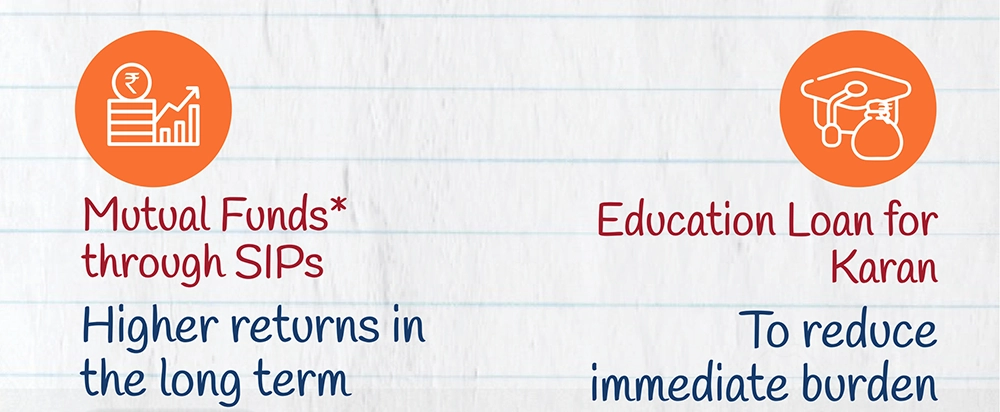 Mutual Funds*
through SIPs
Higher returns in
the long term
Education Loan for
Karan
To reduce
immediate burden